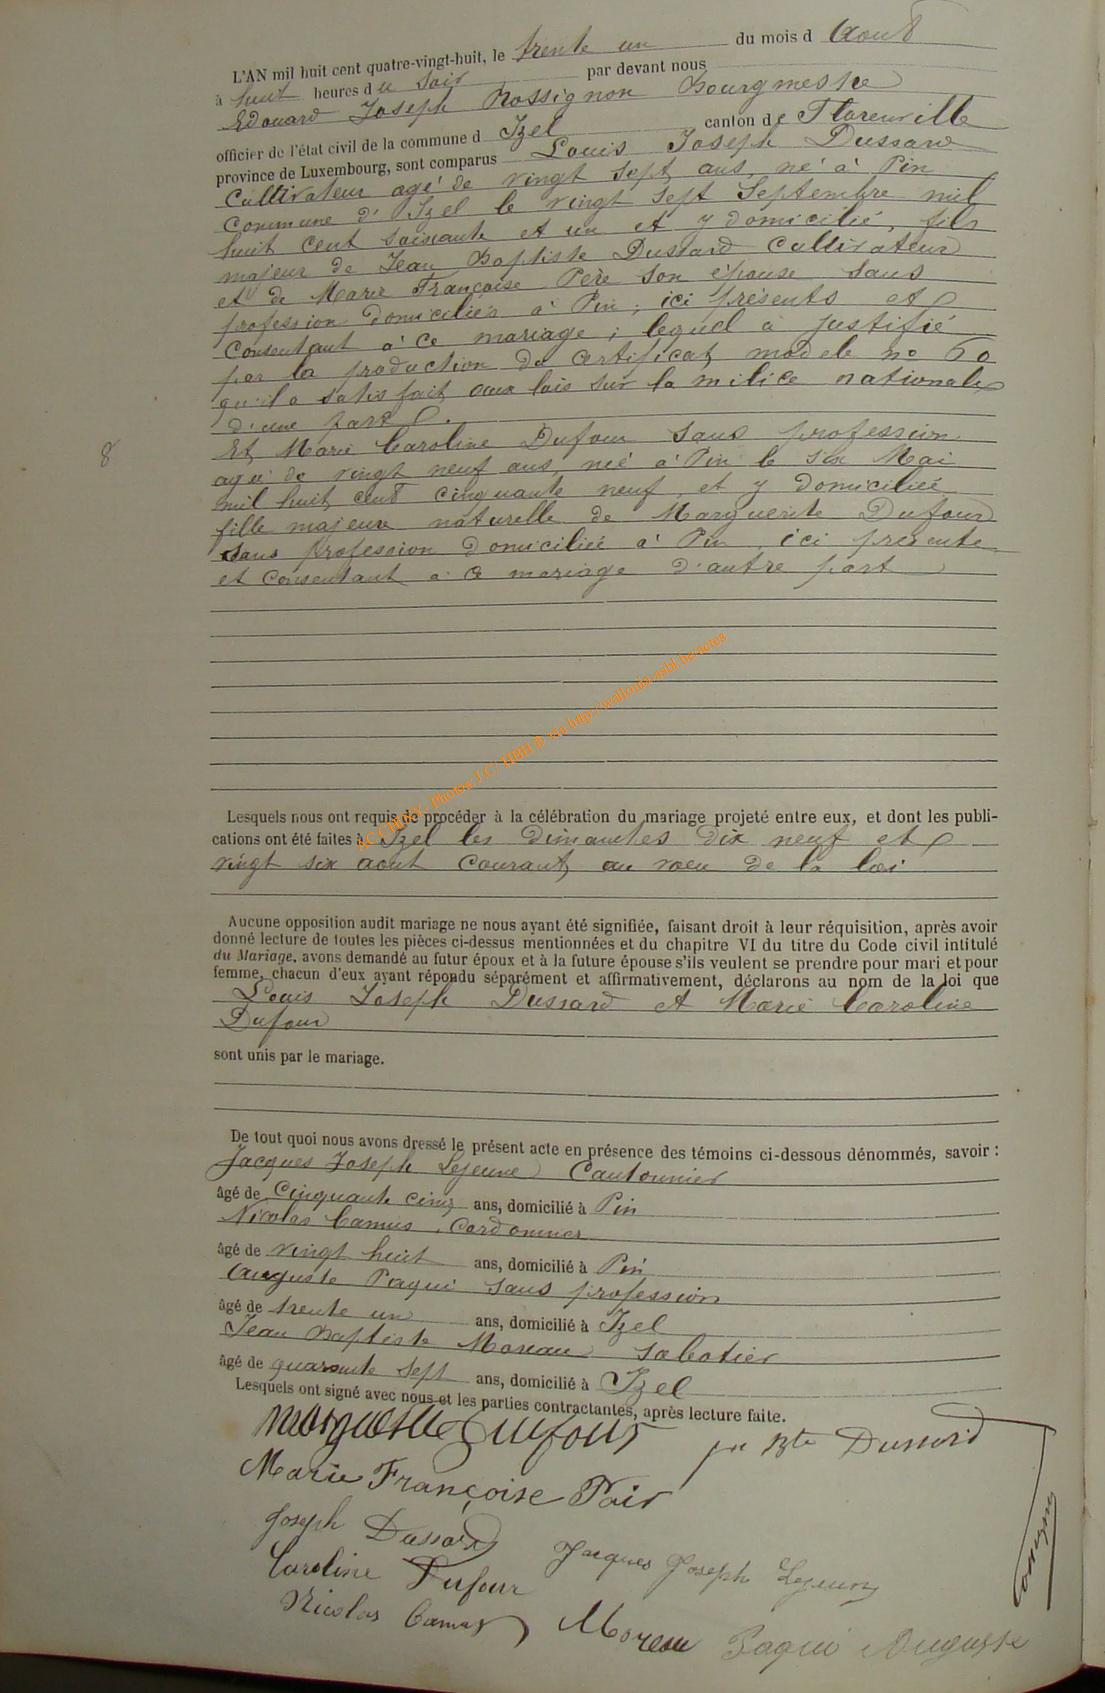 L'AN mil huit cent quatre-vingt-huit, le trente un du mois d Août
à huit heures du soir par devant nous
Edouard Joseph Rossignon Bourgmestre
officier de l'état civil de la commune d Izel canton de Florenville
province de Luxembourg, sont comparus Louis Joseph Dussard
Cultivateur agé de vingt sept ans, né à Pin
Commune d'Izel le vingt sept Septembre mil
huit cent soixante et un et y domicilié, fils
majeur de Jean Baptiste Dussard Cultivateur
et de Marie Françoise Père son épouse sans
profession domiciliés à Pin, ici présents et
Consentant à ce mariage ; lequel a justifié
par la production du certificat modele no 60
qu'il a satisfait aux lois sur la milice nationale
d'une part.
Et Marie Caroline Dufour sans profession
agée de vingt neuf ans, née à Pin le six Mai
mil huit cent cinquante neuf, et y domiciliée
fille majeure naturelle de Marguerite Dufour
sans profession domiciliée à Pin, ici présente
et consentant à ce mariage d'autre part
8
Lesquels nous ont requis de procéder à la célébration du mariage projeté entre eux, et dont les publi-
cations ont été faites à Izel les dimanches dix neuf et
vingt six aout courant, au voeu de la loi
Aucune opposition audit mariage ne nous ayant été signifiée, faisant droit à leur réquisition, après avoir
donné lecture de toutes les pièces ci-dessus mentionnées et du chapitre VI du titre du Code civil intitulé
du Mariage, avons demandé au futur époux et à la future épouse s'ils veulent se prendre pour mari et pour
femme, chacun d'eux ayant répondu séparément et affirmativement, déclarons au nom de la loi que
Louis Joseph Dussard et Marie Caroline
Dufour
sont unis par le mariage.
De tout quoi nous avons dressé le présent acte en présence des témoins ci-dessous dénommés, savoir :
Jacques Joseph Lejeune Cantonnier
âgé de Cinquante cinq ans, domicilié à Pin
Nicolas Camus, Cordonnier
âgé de vingt huit ans, domicilié à Pin
Auguste Paqui sans profession
âgé de trente un ans, domicilié à Izel
Jean Baptiste Moreau sabotier
âgé de quarante sept ans, domicilié à Izel
Lesquels ont signé avec nous et les parties contractantes, après lecture faite.
Marguerite Dufour Jn Bte Dussard
Marie Françoise Pair
Joseph Dussard Jacques Joseph Lejeune
Caroline Dufour
Nicolas Camus Moreau Paqui Auguste